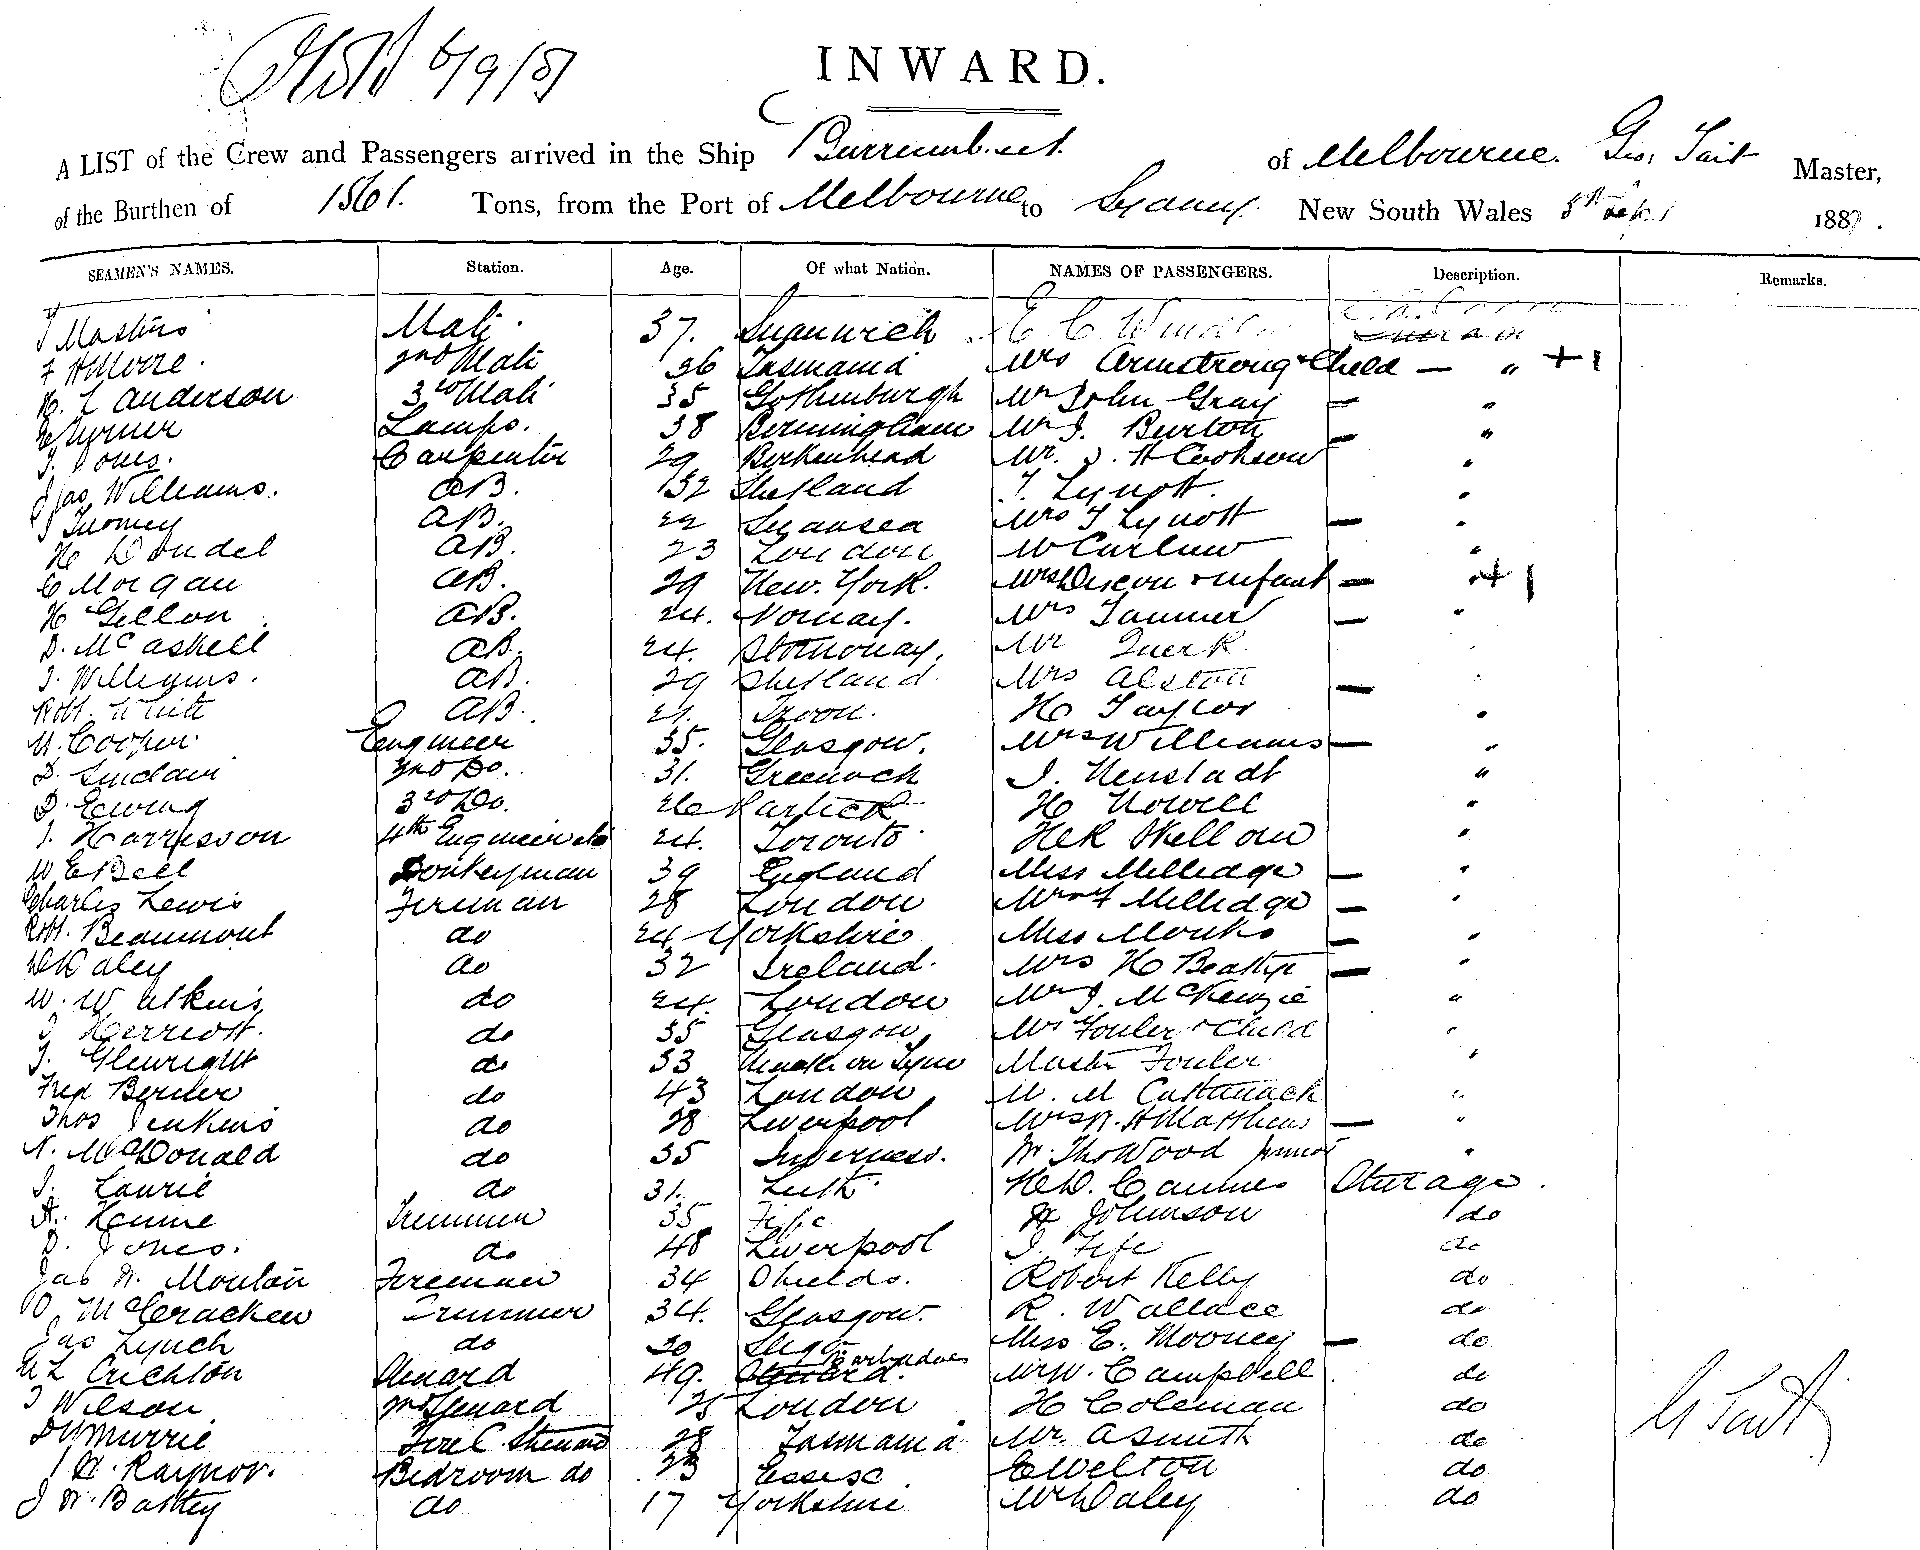 6/9/87
INWARD.
A LIST of the Crew and Passengers arrived in the Ship Burrumbeet of Melbourne. Geo. Tait Master,
of the Burthen of 1861. Tons, from the Port of Melbourne to Sydney. New South Wales 5th Sept. 188
SEAMEN'S NAMES. Station. Age. Of what Nation. NAMES OF PASSENGERS. Description. Remarks.
Mate. 37. E C
F H Moore. 2nd Mate 36 Tasmania Mrs Armstrong + Child — " + 1
Anderson 3rd Mate 35 Gothenburgh Mr John Gray "
Turner Lamps. 38 Birmingham Mr J. Burton "
J. Jones. Carpenter 29 Birkenhead Mr. J. H Cookson "
Jas Williams. AB. 32 Shetland T. Lynott "
J Tuomey AB. 22 Swansea Mrs T Lynott — "
AB. 23 London W Curlew "
C Morgan AB. 29 New. York. Mrs Dixon + infant — + 1
H Gellon AB. 24. Norway. Mrs Tanner — "
D. McCaskell AB. 24. Stornoway. Mr Querk
J. Williams. AB. 29 Shetland Mrs Alston —
Robt. White AB. 21. Troon. H Taylor "
Cooper Engineer 35. Glasgow. Mrs Williams — "
D. Sinclair 2nd Do. 31. Greenock J. Neustadt "
D. Ewing 3rd Do. 26 Partick H Nowell "
J. Harrisson 4th Engineer 24. Toronto H Skellow "
W E Bell Donkeyman 39 England Miss Milledge — "
Charles Lewis Fireman 28 London Milledge — "
Robt. Beaumont do 24 Yorkshire Miss Monks — "
Daley do 32 Ireland. Mrs H — "
W. Watkins do 24. London Mr J. McKenzie "
J Herriott. do 35 Glasgow Fowler + Child "
J. Glewright do 33 on Tyne Master Fowler "
Fred do 43 London M. "
Thos Jenkins do 28 Liverpool H Matthews — "
N. McDonald do 35 Inverness. Mr. Thos Wood junior "
J. Laurie do 31. Leith H D. Steerage.
Trimmer 35 Fife Johnson do
D. Jones. do 48 Liverpool J. Fife do
Jas Fireman 34 Shields. Robert Kelly do
McCracken Trimmer 34. Glasgow. R. Wallace do
Jas Lynch do 20 Sligo Miss E. Mooney — do
Crichton Steward 49. Barbadoes Mr W. Campbell do
J Wilson 2nd Steward 25 London H Coleman do
Murrie Fore C. Steward 28 Tasmania Mr. A Smith do
H. Raynor. Bedroom do 23 Essex E Welton do
J W. do 17 Yorkshire W Daley do
G Tait